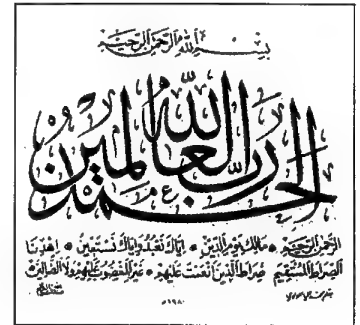 بسم الله الرحمن الرحيم
الحمد لله رب العالمين
الرحمن الرحيم * مالك يوم الدين * إياك نعبد وإياك نستعين * اهدنا
الصراط المستقيم * صراط الذين أنعمت عليهم * غير المغضوب عليهم ولا الضالين